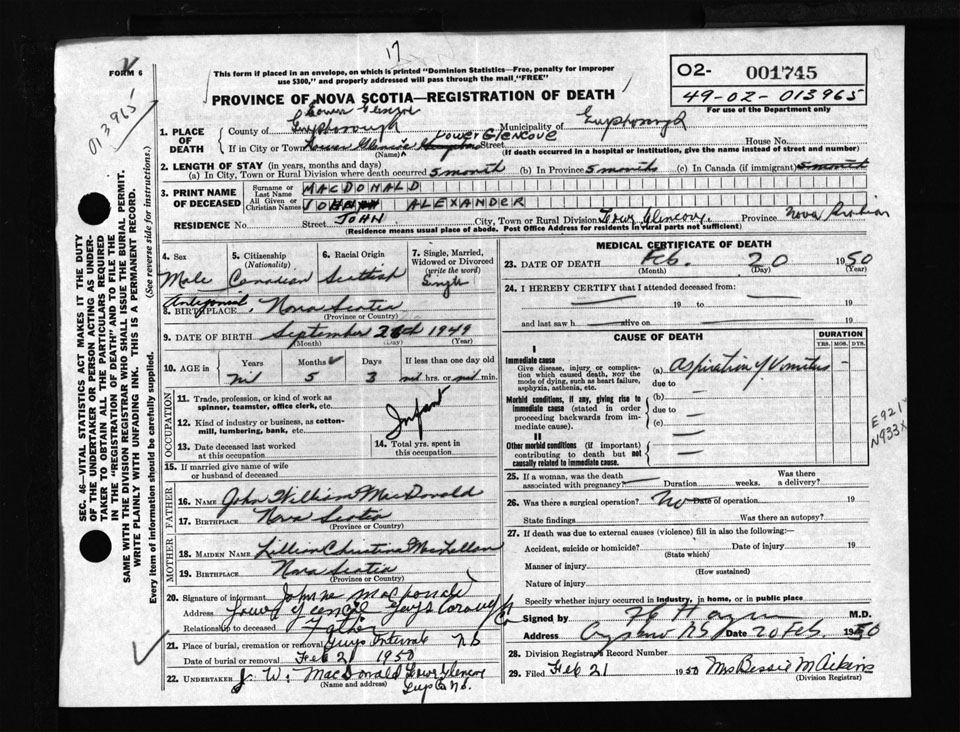 17
FORM 6
This form if placed in an envelope, on which is printed "Dominion Statistics—Free, penalty for improper
use $300," and properly addressed will pass through the mail, "FREE"
02- 001745
49-02-013965
For use of the Department only
013965
PROVINCE OF NOVA SCOTIA—REGISTRATION OF DEATH
SEC. 46—VITAL STATISTICS ACT MAKES IT THE DUTY
OF THE UNDERTAKER OR PERSON ACTING AS UNDER-
TAKER TO OBTAIN ALL THE PARTICULARS REQUIRED
IN THE "REGISTRATION OF DEATH" AND TO FILE THE
SAME WITH THE DIVISION REGISTRAR WHO SHALL ISSUE THE BURIAL PERMIT.
WRITE PLAINLY WITH UNFADING INK. THIS IS A PERMANENT RECORD.
Every item of information should be carefully supplied. (See reverse side for instructions.)
Lower Glencoe
1. PLACE OF DEATH County of Guysborough Municipality of Guysborough
If in City or Town Lower Glencoe Lower Glencove Street House No.
(Name) (If death occurred in a hospital or institution, give the name instead of street and number)
2. LENGTH OF STAY (in years, months and days)
(a) In City, Town or Rural Division where death occurred 5 month (b) In Province 5 months (c) In Canada (if immigrant) 5 month
3. PRINT NAME OF DECEASED Surname or Last Name MACDONALD
All Given or Christian Names JOHN ALEXANDER
JOHN
RESIDENCE No. Street City, Town or Rural Division Lower Glencove. Province Nova Scotia
(Residence means usual place of abode. Post Office Address for residents in rural parts not sufficient)
4. Sex 5. Citizenship (Nationality) 6. Racial Origin 7. Single, Married, Widowed or Divorced (write the word)
Male Canadian Scottish Single
Antigonish
8. BIRTHPLACE Nova Scotia
(Province or Country)
9. DATE OF BIRTH September 1949
(Month) (Day) (Year)
10. AGE in Years Months Days If less than one day old
nil 5 3 nil hrs. or nil min.
OCCUPATION
11. Trade, profession, or kind of work as
spinner, teamster, office clerk, etc.
Infant
12. Kind of industry or business, as cotton-
mill, lumbering, bank, etc.
13. Date deceased last worked
at this occupation
14. Total yrs. spent in
this occupation
15. If married give name of wife
or husband of deceased
FATHER
16. NAME John William MacDonald
17. BIRTHPLACE Nova Scotia
(Province or Country)
MOTHER
18. MAIDEN NAME Lillian Christina MacLellan
19. BIRTHPLACE Nova Scotia
(Province or Country)
20. Signature of informant Johnne MacDonald
Address Lower Glencoe Guys
Relationship to deceased Father
21. Place of burial, cremation or removal Guys Intervale NS
Date of burial or removal Feb 21 1950
22. UNDERTAKER J. W. MacDonald Lower Glencoe
(Name and address) Guys Co NS.
MEDICAL CERTIFICATE OF DEATH
23. DATE OF DEATH Feb. 20 1950
(Month) (Day) (Year)
24. I HEREBY CERTIFY that I attended deceased from:
19 to 19
and last saw h alive on 19
CAUSE OF DEATH DURATION
YRS. MOS. DYS.
I
Immediate cause (a) Aspiration of Vomitus
Give disease, injury or complica-
tion which caused death, NOT the
mode of dying, such as heart failure,
asphyxia, asthenia, etc.
due to
Morbid conditions, if any, giving rise to
immediate cause (stated in order
proceeding backwards from im-
mediate cause).
(b)
due to
(c)
II
Other morbid conditions (if important)
contributing to death but not
causally related to immediate cause.
E921
N933X
25. If a woman, was the death
associated with pregnancy? Duration weeks. Was there
a delivery?
26. Was there a surgical operation? No Date of operation 19
State findings Was there an autopsy?
27. If death was due to external causes (violence) fill in also the following:—
Accident, suicide or homicide? Date of injury 19
(State which)
Manner of injury
(How sustained)
Nature of injury
Specify whether injury occurred in industry, in home, or in public place
Signed by M.D.
Address Date 20 Feb. 1950
28. Division Registrar's Record Number
29. Filed Feb 21 1950 Mrs Bessie M Aikins
(Division Registrar)